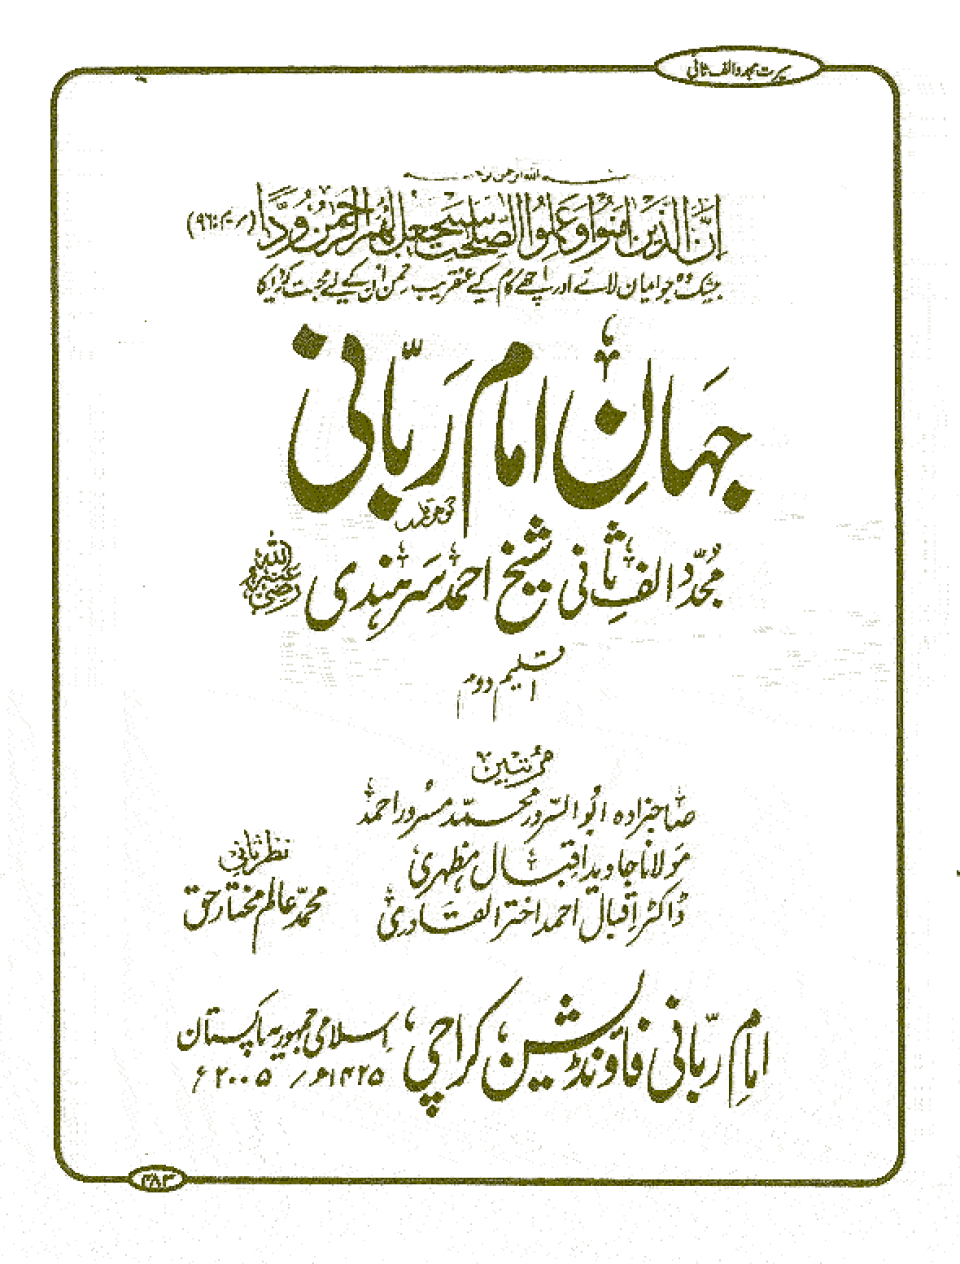 سیرت مجدد الف ثانی
اِنَّ الَّذِیْنَ اٰمَنُوْا وَعَمِلُوا الصّٰلِحٰتِ سَیَجْعَلُ لَهُمُ الرَّحْمٰنُ وُدًّا (مریم:۹۶)
بیشک وہ جو ایمان لائے اور اچھے کام کیے عنقریب رحمن ان کے لیے محبت کردیگا
جہانِ امام ربّانی
مجدّد الفِ ثانی شیخ احمد سرہندی رضی اللہ عنہ
اقلیم دوم
مرتبین
صاحبزادہ ابوالسّرور محمّد مسرور احمد
مولانا جاوید اقبال مظہری
نظرثانی
ڈاکٹر اقبال احمد اختر القادری
محمّد عالم مختار حق
امام ربّانی فاؤنڈیشن، کراچی، اسلامی جمہوریہ پاکستان
۱۴۲۵ھ / ۲۰۰۵ء
۳۸۳